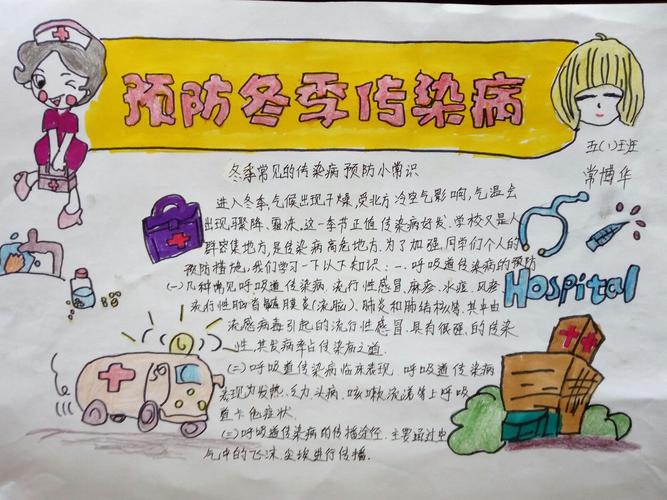 预防冬季传染病
五(1)班
常博华
冬季常见的传染病预防小常识
进入冬季,气候出现干燥,受北方冷空气影响,气温会
出现,骤降,霜冻,这一季节正值传染病好发,学校又是人
群密集地方,是传染病高危地方,为了加强,同学们个人的
预防措施,我们学习一下以下知识:一、呼吸道传染病的预防
(一)几种常见呼吸道传染病,流行性感冒,麻疹,水痘,风疹,
流行性脑脊髓膜炎(流脑)、肺炎和肺结核等,其中由
流感病毒引起的流行性感冒,具有很强,的传染
性,其发病率占传染病之道.
(二)呼吸道传染病临床表现,呼吸道传染病
表现为发热,乏力头痛,咳嗽,流涕等上呼吸
道卡他症状.
(三)呼吸道传染病的传播途径,主要通过空
气中的飞沫,尘埃进行传播.
Hospital